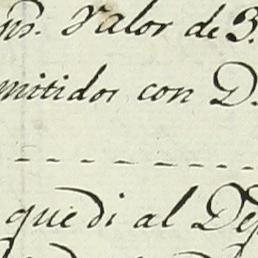 Valor de 3.
mitidos con D.
que di al